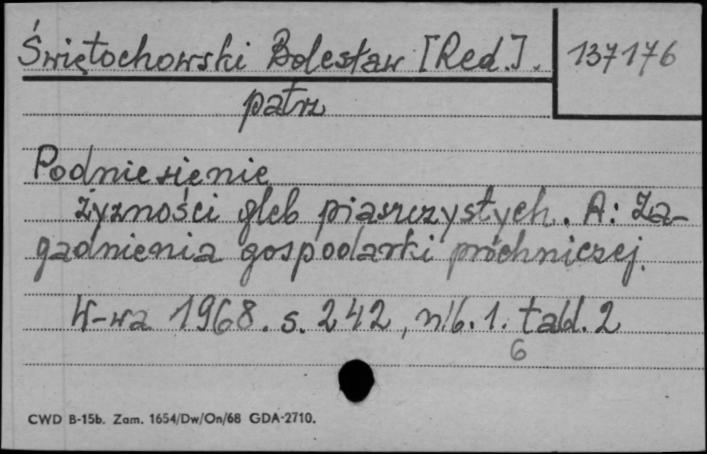 Świętochowski Bolesław [Red.]. 137176
patrz
Podniesienie
żyzności gleb piaszczystych. A: Za-
gadnienia gospodarki próchniczej.
W-wa 1968. s. 242, nlb. 1. tabl. 2
6
CWD B-15b. Zam. 1654/Dw/On/68 GDA-2710.